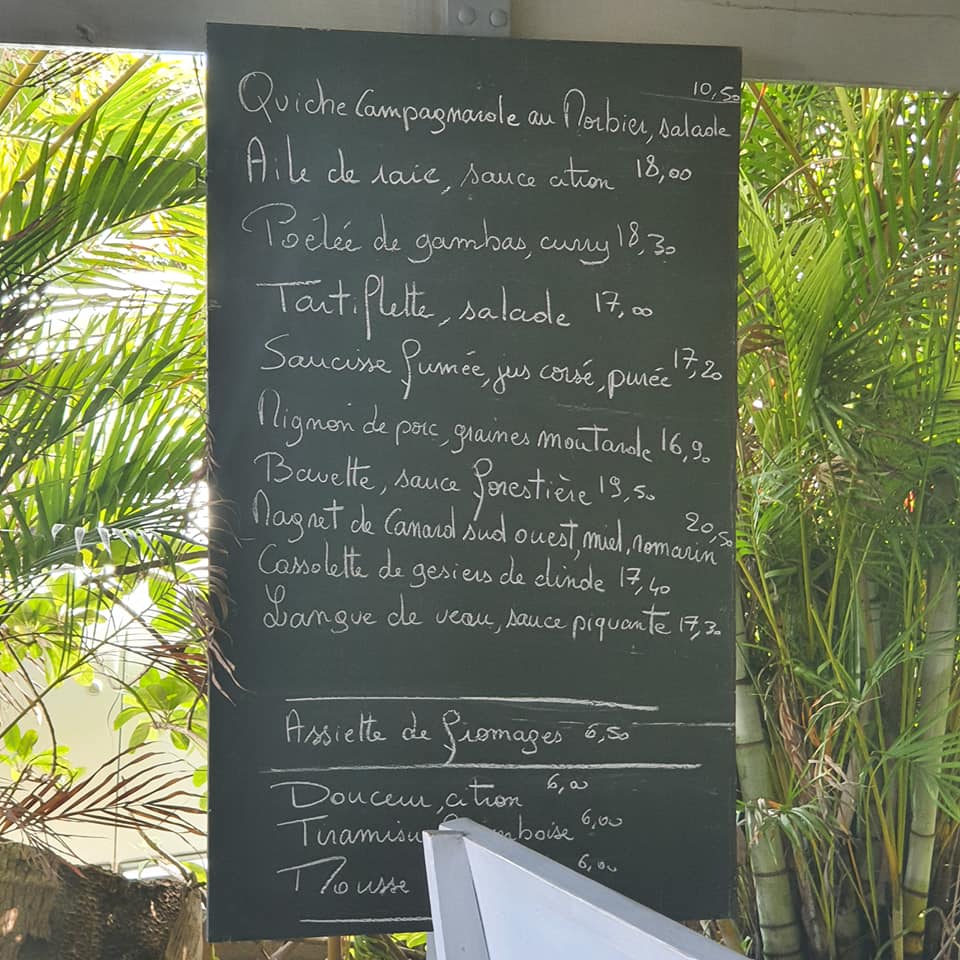 Quiche Campagnarde au Morbier, salade 10,50
Aile de raie, sauce citron 18,00
Poêlée de gambas, curry 18,30
Tartiflette, salade 17,00
Saucisse fumée, jus corsé, purée 17,20
Mignon de porc, graines moutarde 16,90
Bavette, sauce forestière 19,50
Magret de Canard sud ouest, miel, romarin 20,50
Cassolette de gesiers de dinde 17,40
Langue de veau, sauce piquante 17,30
Assiette de fromages 6,50
Douceur, citron 6,00
Tiramisu 6,00
Mousse 6,00